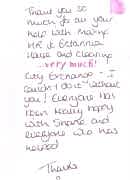 Thank you so
much for all your
help with Marina
House and Cleaning
...very much!
City Exchange - I
couldn't do it without
you! Everyone has
been really happy
with Simone and
everyone who has
helped!
Thanks